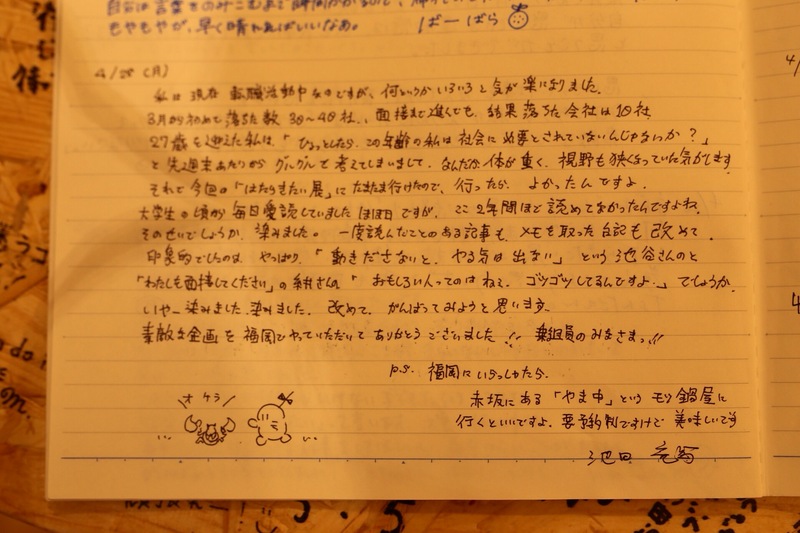 もやもやが、早く晴れればいいなぁ。 ばーばら
4/28 (月)
私は現在 転職活動中なのですが、何というかいろいろと気が楽になりました。
3月から初めて落ちた数 30〜40社、、面接まで進んでも、結果落ちた会社は10社
27歳を迎えた私は、「ひょっとしたら、この年齢の私は社会に必要とされていないんじゃないか？」
と先週末あたりから グルグルで考えてしまいまして、なんだか体が重く、視野も狭くなっていた気がします
それで今回の「はたらきたい展」にたまたま行けたので、行ったら、よかったんですよ。
大学生の頃から毎日愛読していました ほぼ日ですが、ここ2年間ほど読めてなかったんですよね。
そのせいでしょうか、染みました。一度読んだことのある記事も、メモを取った 記も 改めて。
印象的でしたのは、やっぱり、「動きださないと、やる気は出ない」という池谷さんのと
「わたしも面接してください」の 糸井さんの「おもしろい人ってのはねぇ、ゴツゴツしてるんですよ…」でしょうか。
いやー染みました、染みました。改めて、がんばってみようと思います。
素敵な企画を福岡でやっていただいて ありがとうございました!! 乗組員のみなさまっ!!
P.S. 福岡にいらっしゃたら、
赤坂にある「やま中」という モツ鍋屋に
行くといいですよ。要予約制ですけど 美味しいです
オケラ
池田